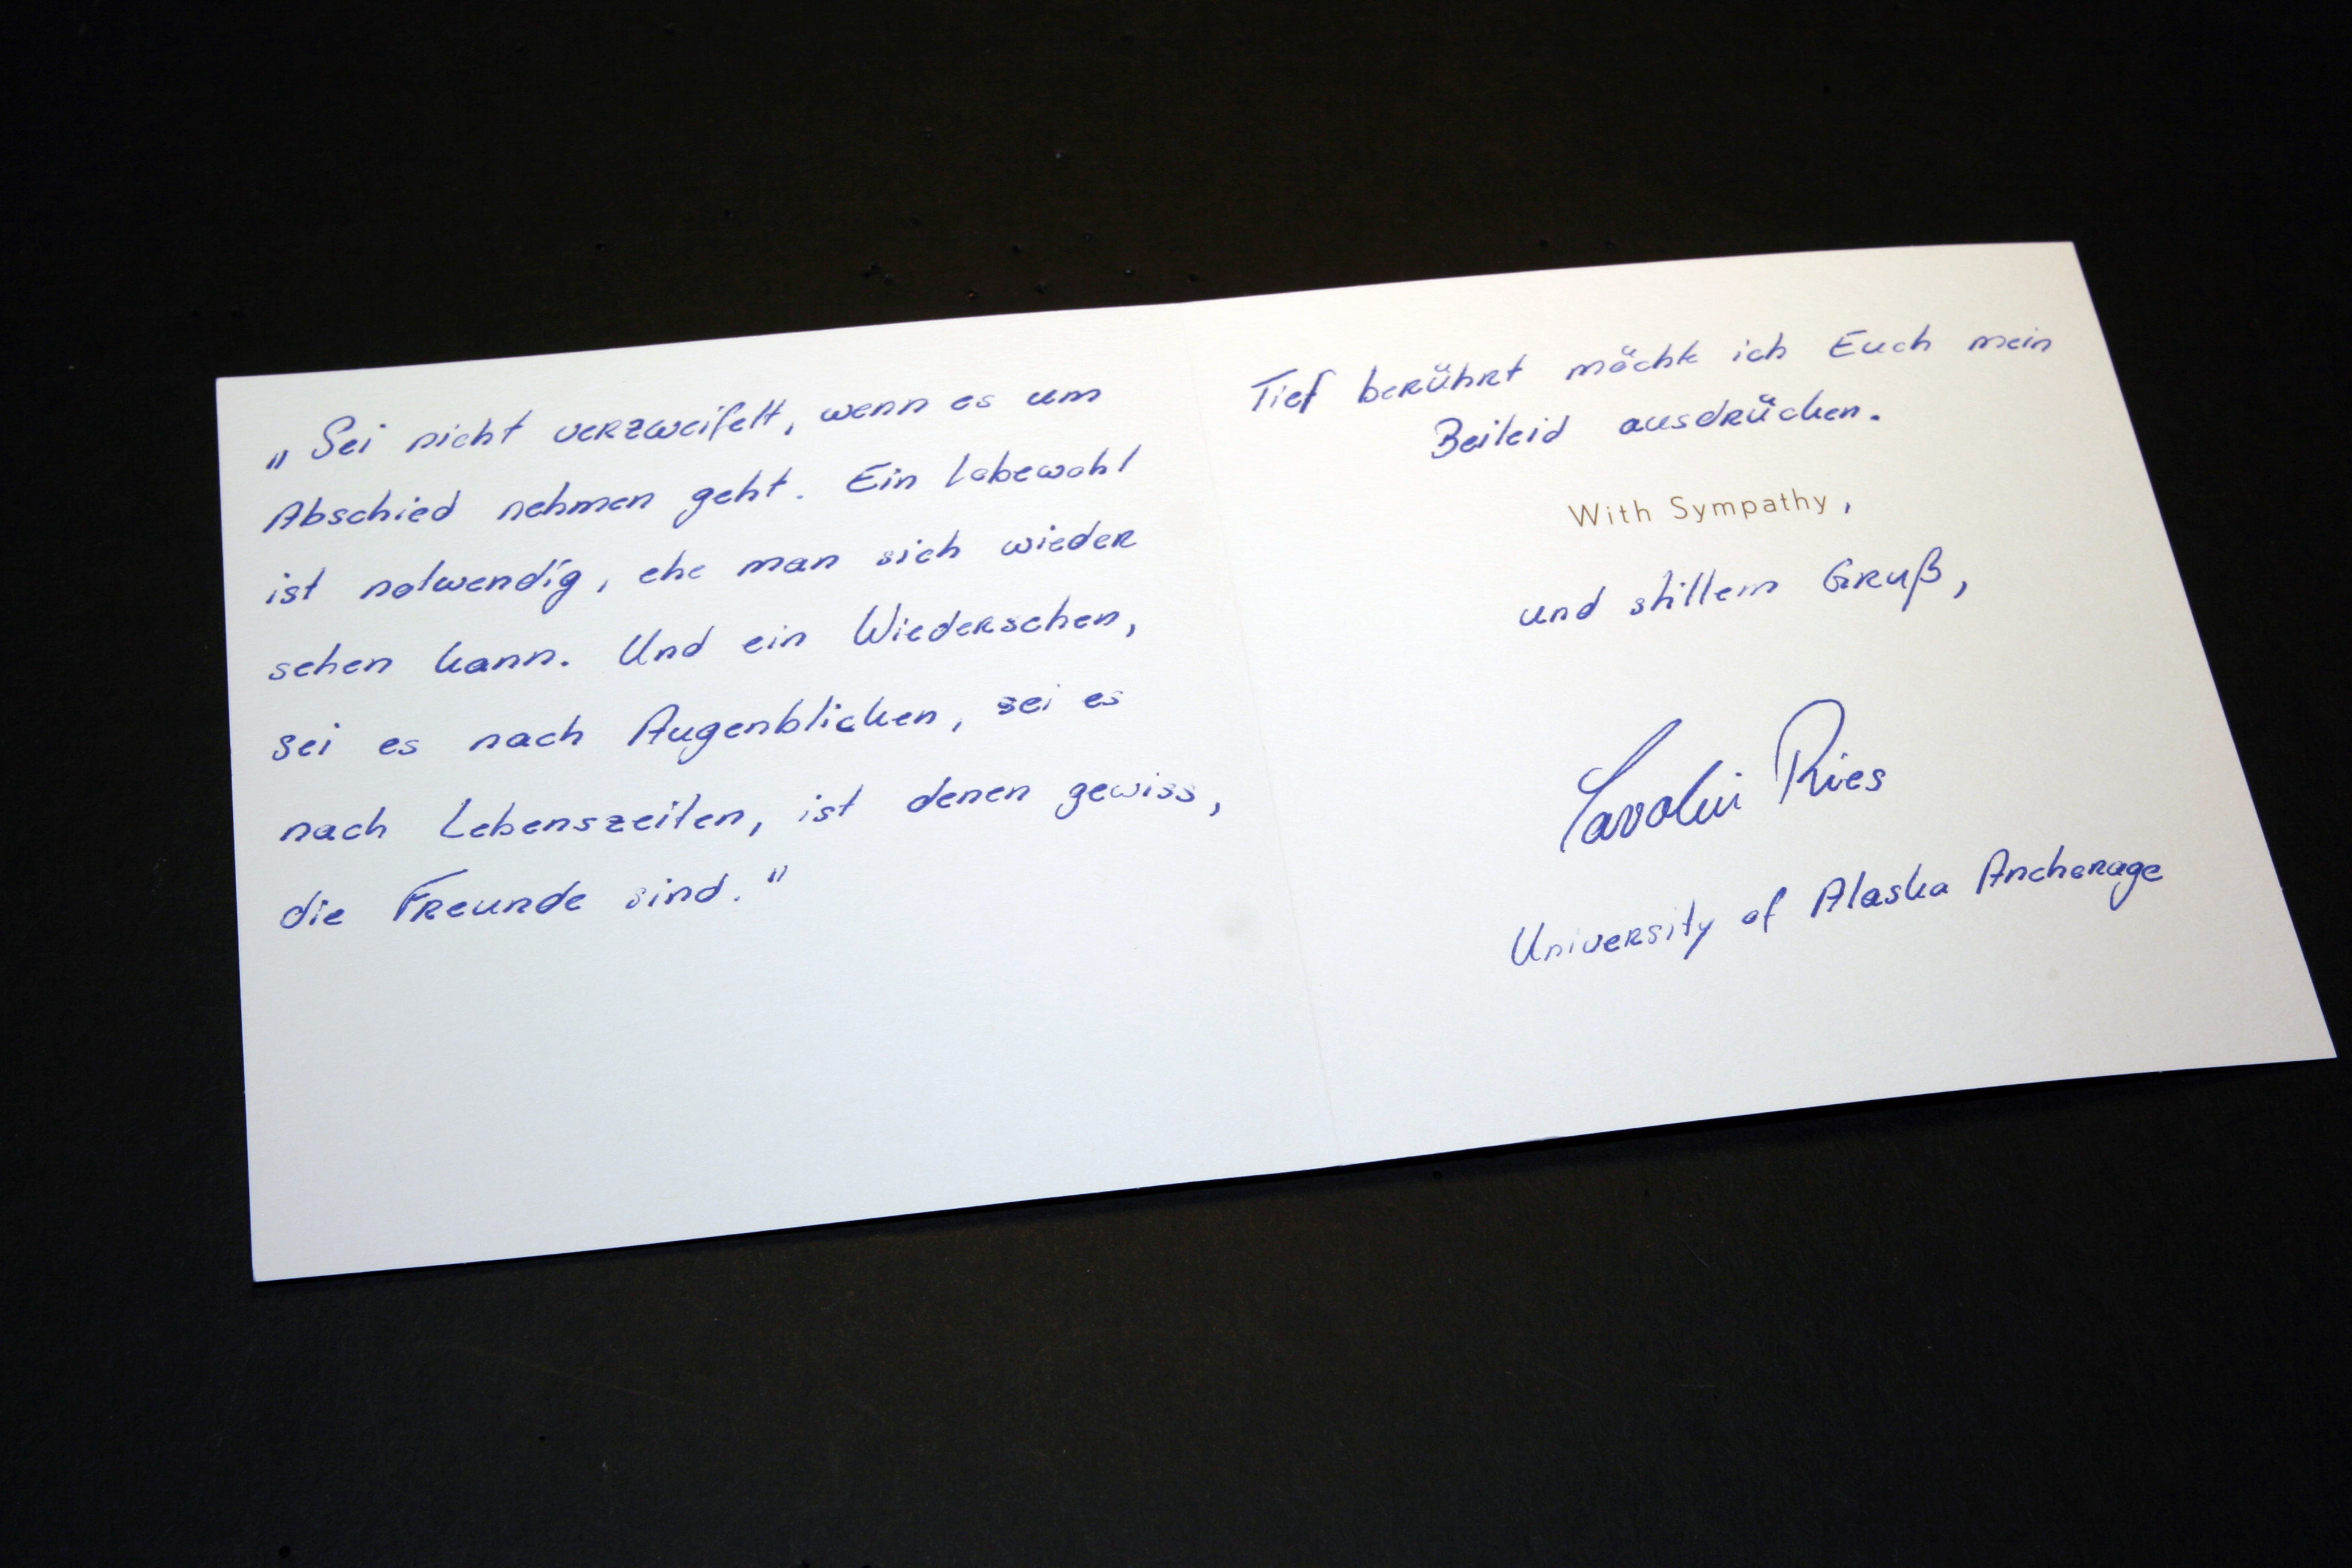 „Sei nicht verzweifelt, wenn es um
Abschied nehmen geht. Ein Lebewohl
ist notwendig, ehe man sich wieder
sehen kann. Und ein Wiedersehen,
sei es nach Augenblicken, sei es
nach Lebenszeiten, ist denen gewiss,
die Freunde sind."
Tief berührt möchte ich Euch mein
Beileid ausdrücken.
With Sympathy,
und stillem Gruß,
Carolin Ries
University of Alaska Anchorage